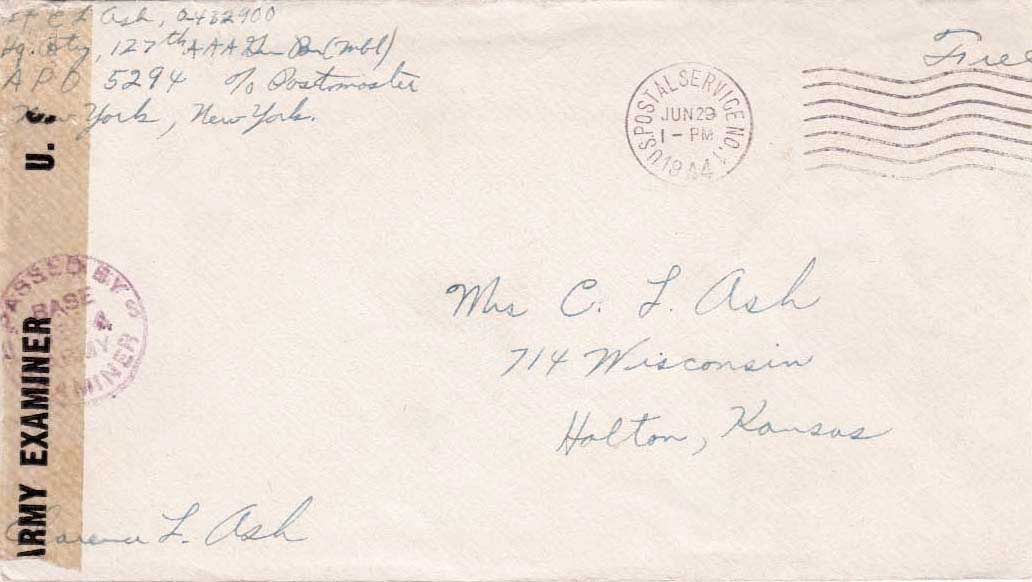 C L Ash, O-482900
Hq. Btry, 127th AAA Gun Bn (Mbl)
APO 5294 c/o Postmaster
New York, New York.
Free
U.S. POSTAL SERVICE NO. 1
JUN 29
1 - PM
1944
Mrs C. L. Ash
714 Wisconsin
Holton, Kansas
U. S
ARMY EXAMINER
PASSED BY
BASE
ARMY
EXAMINER
Clarence L. Ash